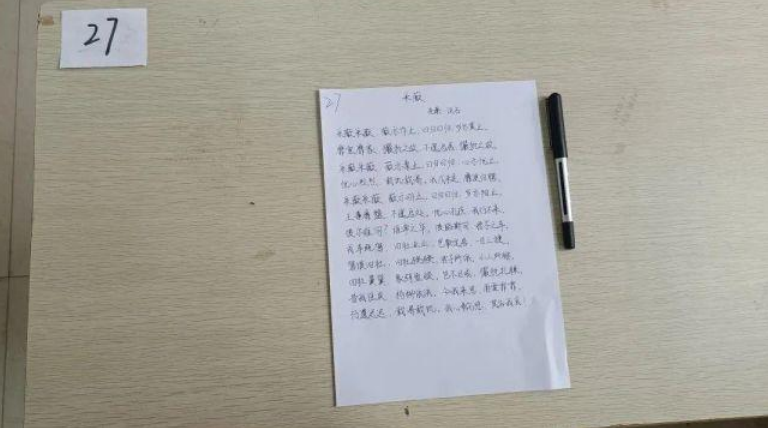 27
27
采薇
采薇采薇, 薇亦作止, 曰归曰归, 岁亦莫止。
靡室靡家, 玁狁之故, 不遑启居, 玁狁之故。
采薇采薇, 薇亦柔止, 曰归曰归, 心亦忧止。
忧心烈烈, 载饥载渴, 我戍未定, 靡使归聘。
采薇采薇, 薇亦刚止, 曰归曰归, 岁亦阳止。
王事靡盬, 不遑启处, 忧心孔疚, 我行不来
彼尔维何? 维常之华, 彼路斯何? 君子之车,
戎车既驾, 四牡业业, 岂敢定居, 一月三捷。
驾彼四牡, 四牡骙骙, 君子所依, 小人所腓。
四牡翼翼, 象弭鱼服, 岂不日戒, 玁狁孔棘。
昔我往矣, 杨柳依依, 今我来思, 雨雪霏霏,
行道迟迟, 载渴载饥, 我心伤悲, 莫知我哀!